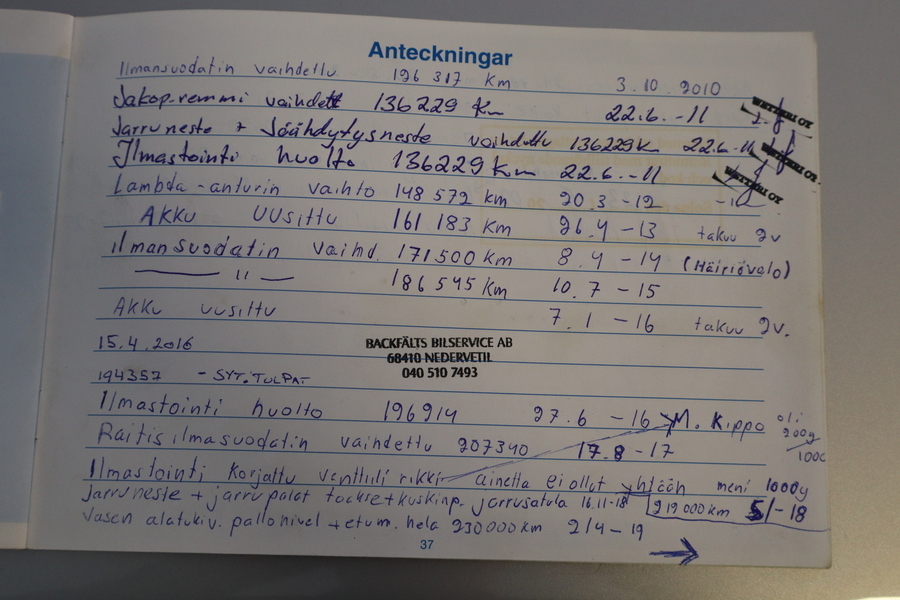 Anteckningar
Ilmansuodatin vaihdettu 126 317 km 3.10.2010
Jakop.remmi vaihdett 136229 Km 22.6.-11
Jarruneste + Jäähdytysneste vaihdettu 136229 Km 22.6.-11
Ilmastointi huolto 136229 Km 22.6.-11
Lambda-anturin vaihto 148 572 km 20.3-12
AKKU UUSittu 161 183 km 26.4-13 takuu 2v
ilmansuodatin vaihd. 171500 km 8.4-14 (Häiriövalo)
— " — 186 545 km 10.7-15
AKKU uusittu 7.1-16 takuu 2v.
15.4.2016
BACKFÄLTS BILSERVICE AB
68410 NEDERVETIL
040 510 7493
194357 - SYT.TULPAT
Ilmastointi huolto 196914 27.6-16 M. Kippo
Raitisilmasuodatin vaihdettu 207340 17.8-17
Ilmastointi korjattu venttiili rikki ainetta ei ollut yhtään meni 1000g
Jarruneste + jarrupalat jarrusatula 16.11-18 219000 km 5/-18
Vasen alatukiv. pallonivel + etum. hela 230000 km 2/4-19
37